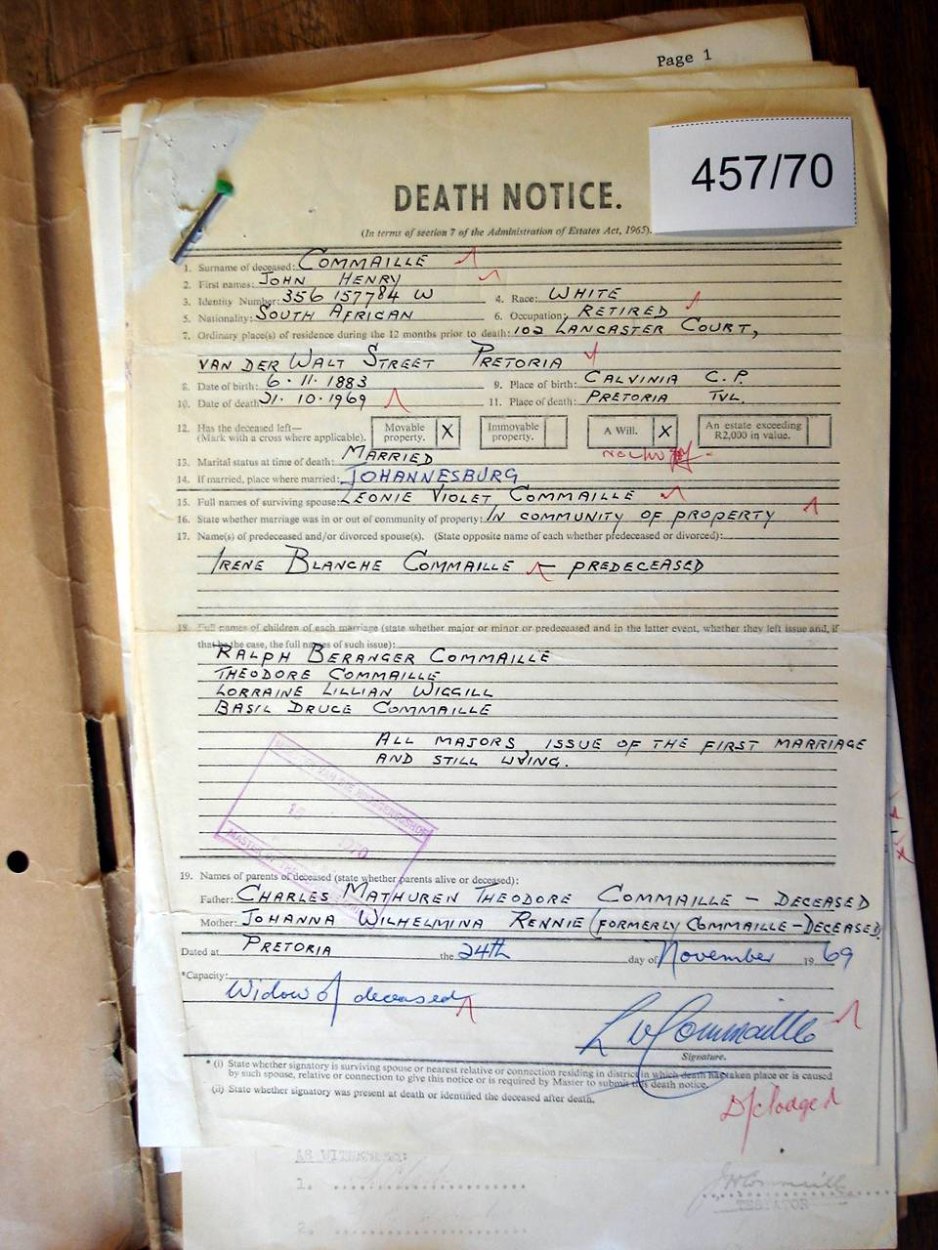 Page 1
457/70
DEATH NOTICE.
(In terms of section 7 of the Administration of Estates Act, 1965).
1. Surname of deceased: COMMAILLE
2. First names: JOHN HENRY
3. Identity Number: 356 157784 W 4. Race: WHITE
5. Nationality: SOUTH AFRICAN 6. Occupation: RETIRED
7. Ordinary place(s) of residence during the 12 months prior to death: 102 LANCASTER COURT,
VAN DER WALT STREET PRETORIA
8. Date of birth: 6·11·1883 9. Place of birth: CALVINIA C.P.
10. Date of death: 31·10·1969 11. Place of death: PRETORIA TVL.
12. Has the deceased left— (Mark with a cross where applicable). Movable property. X Immovable property. A Will. X An estate exceeding R2,000 in value.
13. Marital status at time of death: MARRIED
14. If married, place where married: JOHANNESBURG
15. Full names of surviving spouse: LEONIE VIOLET COMMAILLE
16. State whether marriage was in or out of community of property: IN COMMUNITY OF PROPERTY
17. Name(s) of predeceased and/or divorced spouse(s). (State opposite name of each whether predeceased or divorced):
IRENE BLANCHE COMMAILLE — PREDECEASED
18. Full names of children of each marriage (state whether major or minor or predeceased and in the latter event, whether they left issue and, if
that be the case, the full names of such issue):
RALPH BERANGER COMMAILLE
THEODORE COMMAILLE
LORRAINE LILLIAN WIGGILL
BASIL DRUCE COMMAILLE
ALL MAJORS, ISSUE OF THE FIRST MARRIAGE
AND STILL LIVING.
19. Names of parents of deceased (state whether parents alive or deceased):
Father: CHARLES MATHUREN THEODORE COMMAILLE – DECEASED
Mother: JOHANNA WILHELMINA RENNIE (FORMERLY COMMAILLE – DECEASED
Dated at PRETORIA the 24th day of November 1969
*Capacity:
Widow of deceased
L v Commaille
Signature.
* (i) State whether signatory is surviving spouse or nearest relative or connection residing in district in which death has taken place or is caused
by such spouse, relative or connection to give this notice or is required by Master to submit this death notice.
(ii) State whether signatory was present at death or identified the deceased after death.
D/c lodged
AS WITNESSES:
1.
2.
TESTATOR